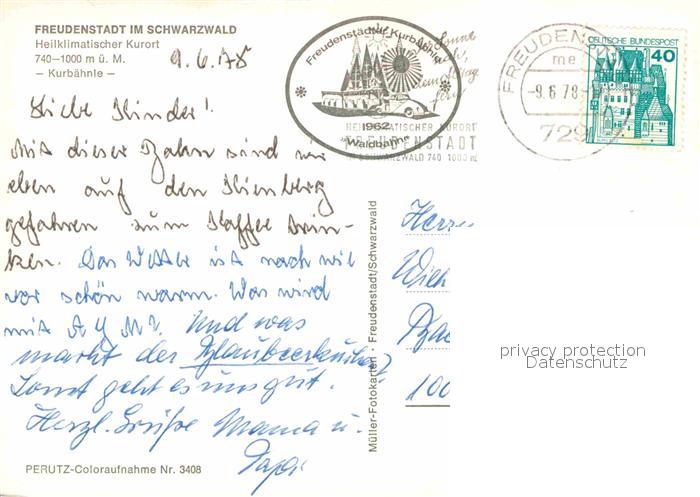 FREUDENSTADT IM SCHWARZWALD
Heilklimatischer Kurort
740–1000 m ü. M.
– Kurbähnle –
9.6.78
Liebe Kinder!
Mit dieser Bahn sind wir
eben auf den Kienberg
gefahren zum Kaffee trin-
ken. Das Wetter ist nach wie
vor schön warm. Was wird
mit
Und was
macht der
Sonst geht es uns gut.
Herzl. Grüße Mama u.
Papi
PERUTZ-Coloraufnahme Nr. 3408
Freudenstädter Kurbähnle
1962
"Waldbahn"
HEILKLIMATISCHER KURORT
FREUDENSTADT
SCHWARZWALD 740 1000 m
FREUDENS
me
-9.6.78-
729
DEUTSCHE BUNDESPOST
40
Müller-Fotokarten · Freudenstadt/Schwarzwald
100
privacy protection
Datenschutz